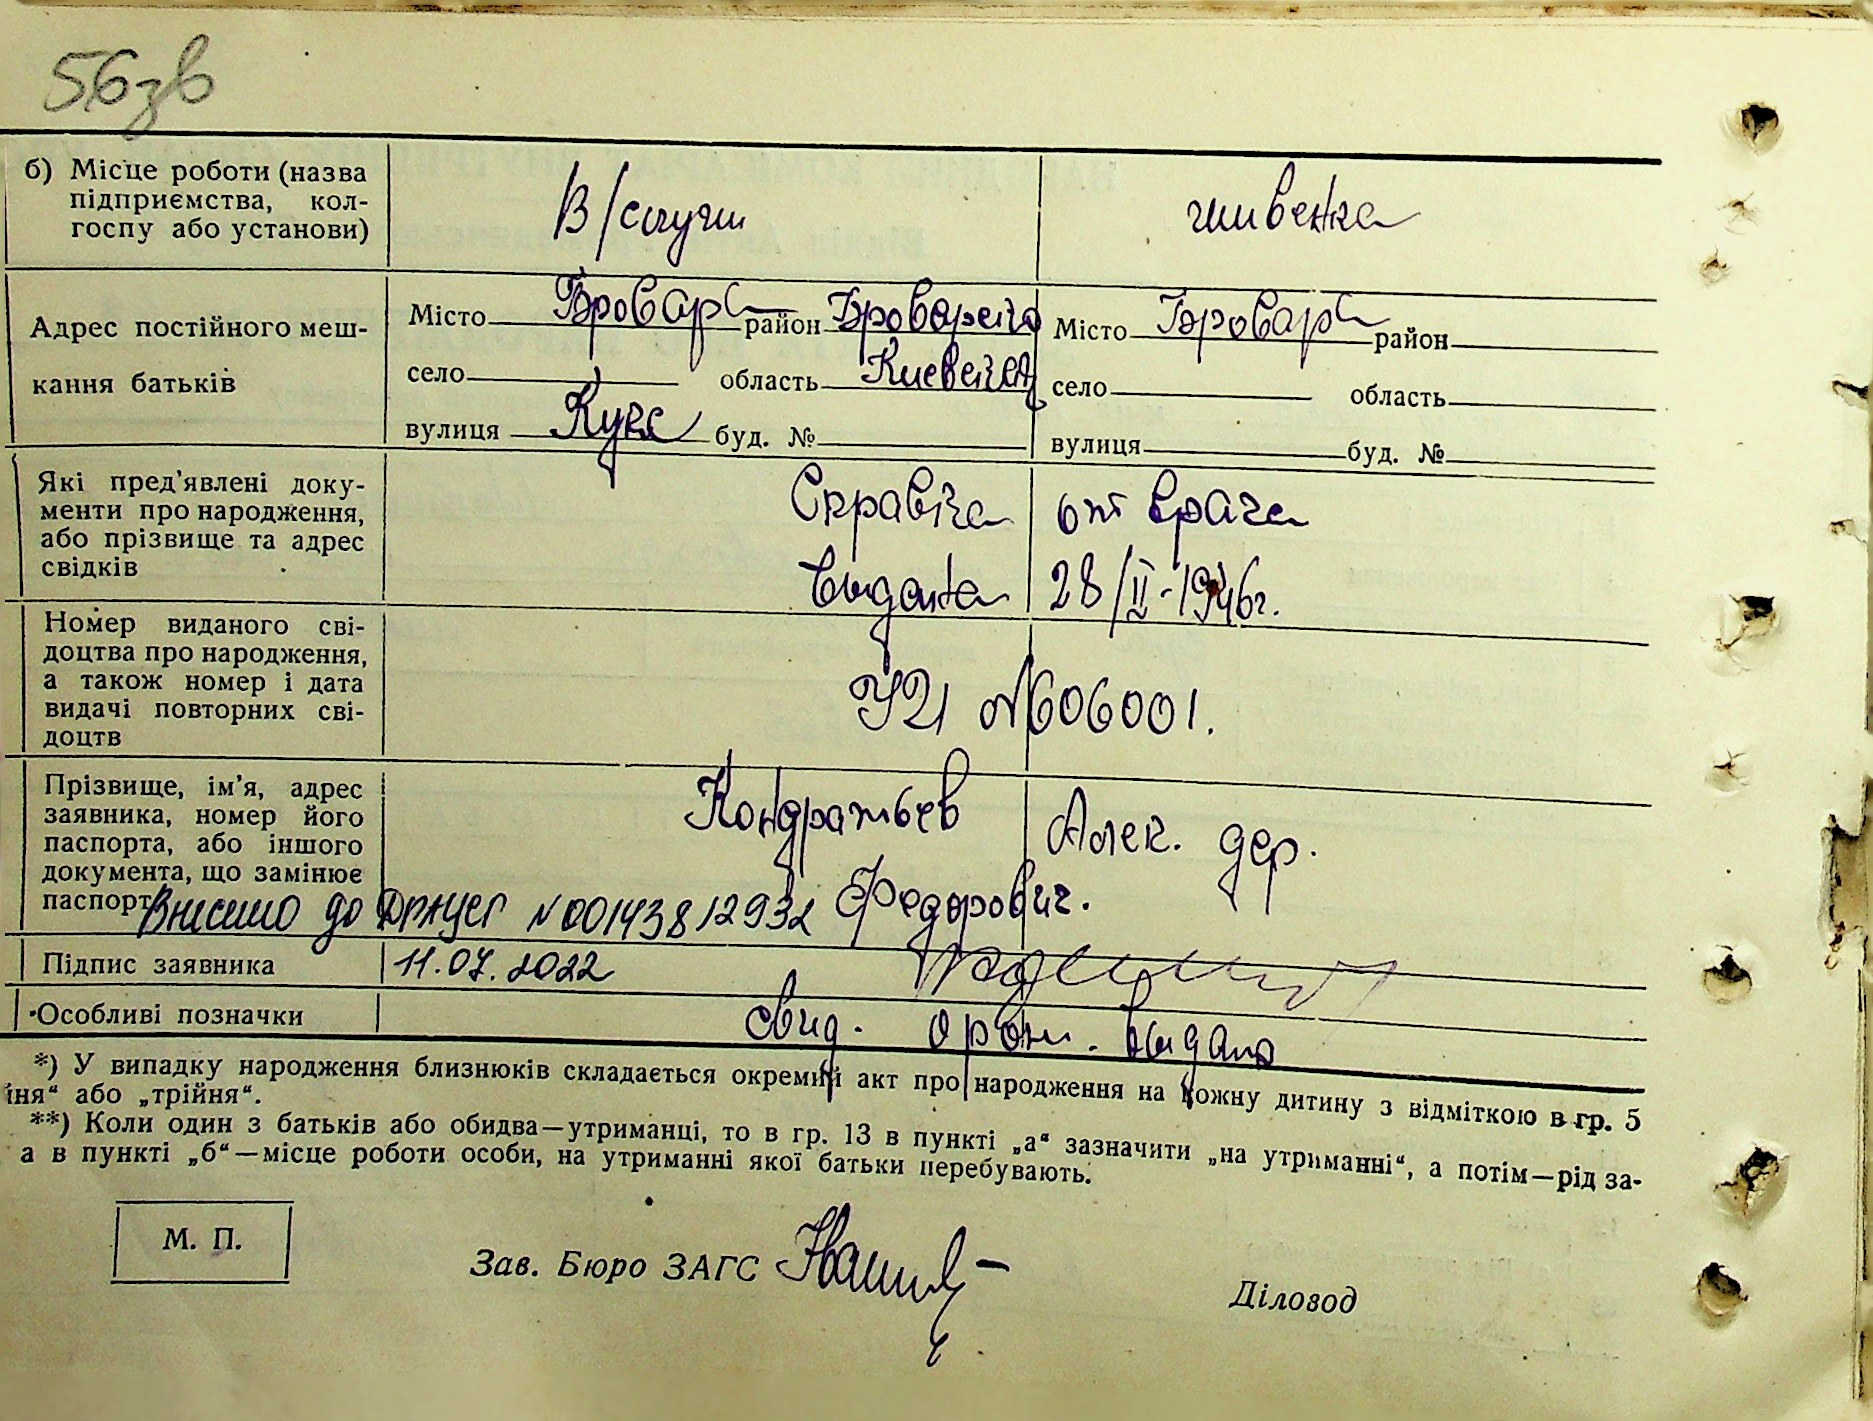 56зв
б) Місце роботи (назва
підприємства, кол-
госпу або установи)
В/служ
швенка
Адрес постійного меш-
кання батьків
Місто Бровары район Броварско
село область Киевска
вулиця буд. №
Місто Бровары район
село область
вулиця буд. №
Які пред'явлені доку-
менти про народження,
або прізвище та адрес
свідків
Справка от врача
выдана 28/II-1946г.
Номер виданого сві-
доцтва про народження,
а також номер і дата
видачі повторних сві-
доцтв
№606001.
Прізвище, ім'я, адрес
заявника, номер його
паспорта, або іншого
документа, що замінює
паспорт
Кондратьев Алек. дер.
Федорович.
Внесено до ДРАЦСГ №00143812932
Підпис заявника
11.07.2022
Особливі позначки
свид. выдано
*) У випадку народження близнюків складається окремий акт про народження на кожну дитину з відміткою в гр. 5
їня" або „трійня".
**) Коли один з батьків або обидва—утриманці, то в гр. 13 в пункті „а" зазначити „на утриманні", а потім—рід за-
а в пункті „б"—місце роботи особи, на утриманні якої батьки перебувають.
М. П.
Зав. Бюро ЗАГС
Діловод